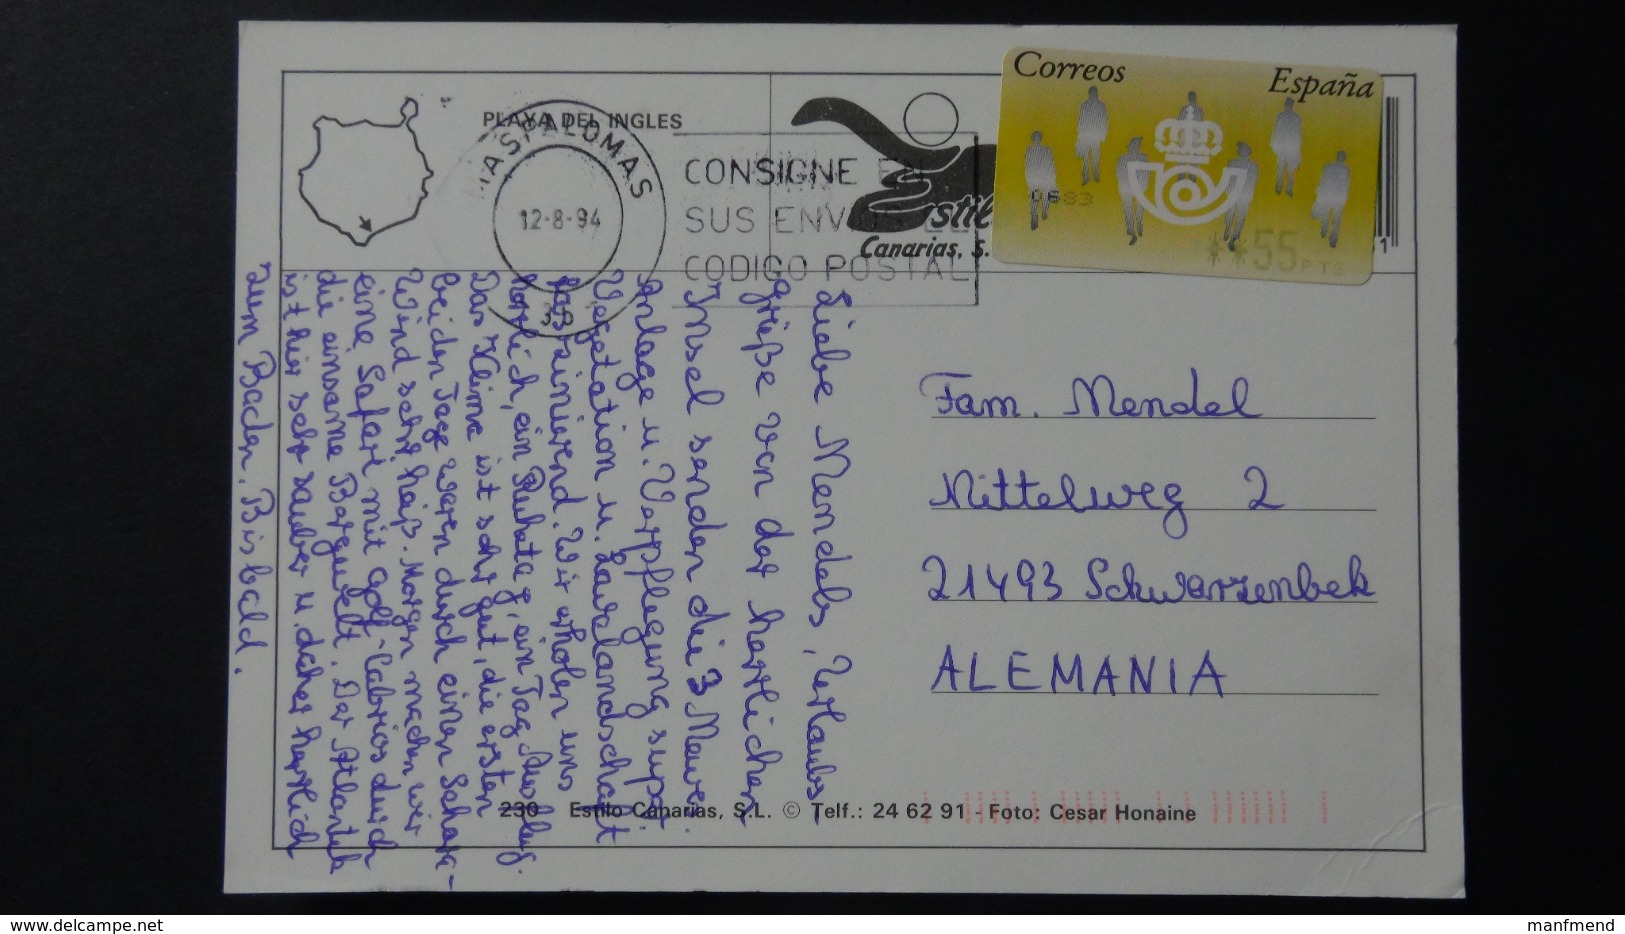 PLAYA DEL INGLES
MASPALOMAS
12-8-94
35
CONSIGNE EN
SUS ENVIOS EL
CODIGO POSTAL
Canarias, S.
Correos
España
0683
**55 PTS
1
Liebe Mendels, Urlaubs-
grüße von der herrlichen
Insel senden die 3 Mewe
Anlage u. Verpflegung supt
Vegetation u. Landschaft
faszinierend. Wir erholen uns
herrlich, ein Ruhetag, ein Tag Ausflug.
Das Klima ist sehr gut, die ersten
beiden Tage waren durch einen Sahara-
Wind sehr heiß. Morgen machen wir
eine Safari mit Golf-Cabrios durch
die einsame Bergwelt. Der Atlantik
ist hier sehr sauber u. daher herrlich
zum Baden. Bis bald.
Fam. Mendel
Mittelweg 2
21493 Schwarzenbek
ALEMANIA
230 Estilo Canarias, S.L. © Telf.: 24 62 91 - Foto: Cesar Honaine
www.delcampe.net
manfmend